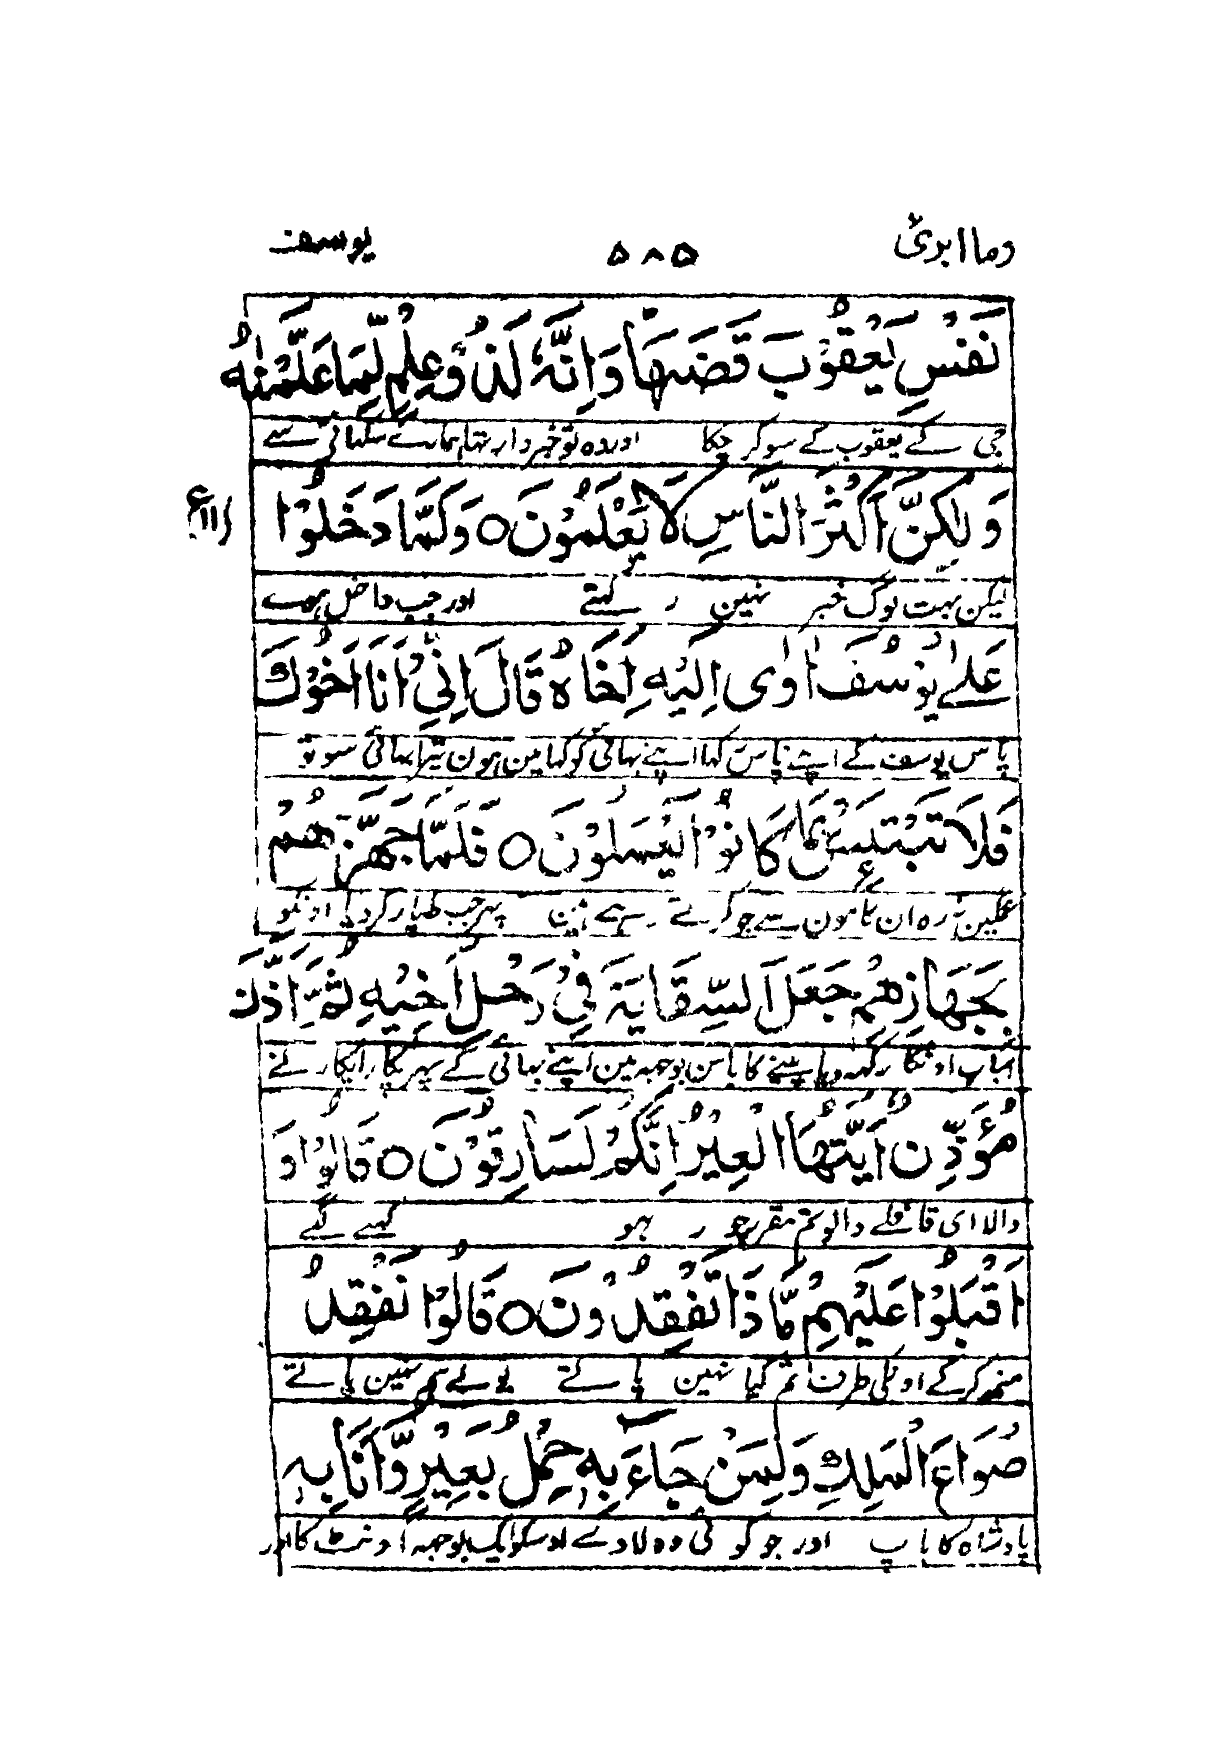 وما ابرئ ۵۸۵ یوسف
نَفْسِ يَعْقُوْبَ قَضٰىهَا وَاِنَّهٗ لَذُوْ عِلْمٍ لِّمَا عَلَّمْنٰهُ
جی کے یعقوب کے سو کر چکا اور وہ تو خبردار تھا ہمارے سکھائے سے
وَلٰكِنَّ اَكْثَرَ النَّاسِ لَا يَعْلَمُوْنَ ○ وَلَمَّا دَخَلُوْا
ع ۱۱
لیکن بہت لوگ خبر نہین رکہتے اور جب داخل ہوے
عَلٰے يُوْسُفَ اٰوٰى اِلَيْهِ اَخَاهُ قَالَ اِنِّىْ اَنَا اَخُوْكَ
پاس یوسف کے اپنے پاس رکہا اپنے بہائی کو کہا مین ہون تیرا بہائی سو تو
فَلَا تَبْتَئِسْ بِمَا كَانُوْا يَعْمَلُوْنَ ○ فَلَمَّا جَهَّزَهُمْ
غمگین نہ رہ ان کامون سے جو کرتے رہے ہین پہر جب طیار کر دیا اونکو
بِجَهَازِهِمْ جَعَلَ السِّقَايَةَ فِىْ رَحْلِ اَخِيْهِ ثُمَّ اَذَّنَ
اسباب اونکا رکہہ دیا پینے کا باسن بوجہہ مین اپنے بہائی کے پہر پکارا پکارنے
مُؤَذِّنٌ اَيَّتُهَا الْعِيْرُ اِنَّكُمْ لَسَارِقُوْنَ ○ قَالُوْا وَ
والا ای قافلے والو تم مقرر چور ہو کہنے لگے
اَقْبَلُوْا عَلَيْهِمْ مَّاذَا تَفْقِدُوْنَ ○ قَالُوْا نَفْقِدُ
منہہ کر کے اونکی طرف تم کیا نہین پاتے بولے ہم نہین پاتے
صُوَاعَ الْمَلِكِ وَلِمَنْ جَآءَ بِهٖ حِمْلُ بَعِيْرٍ وَّاَنَا بِهٖ
پادشاہ کا ماپ اور جو کوئی وہ لاوے اوسکو ایک بوجہہ اونٹ کا اور